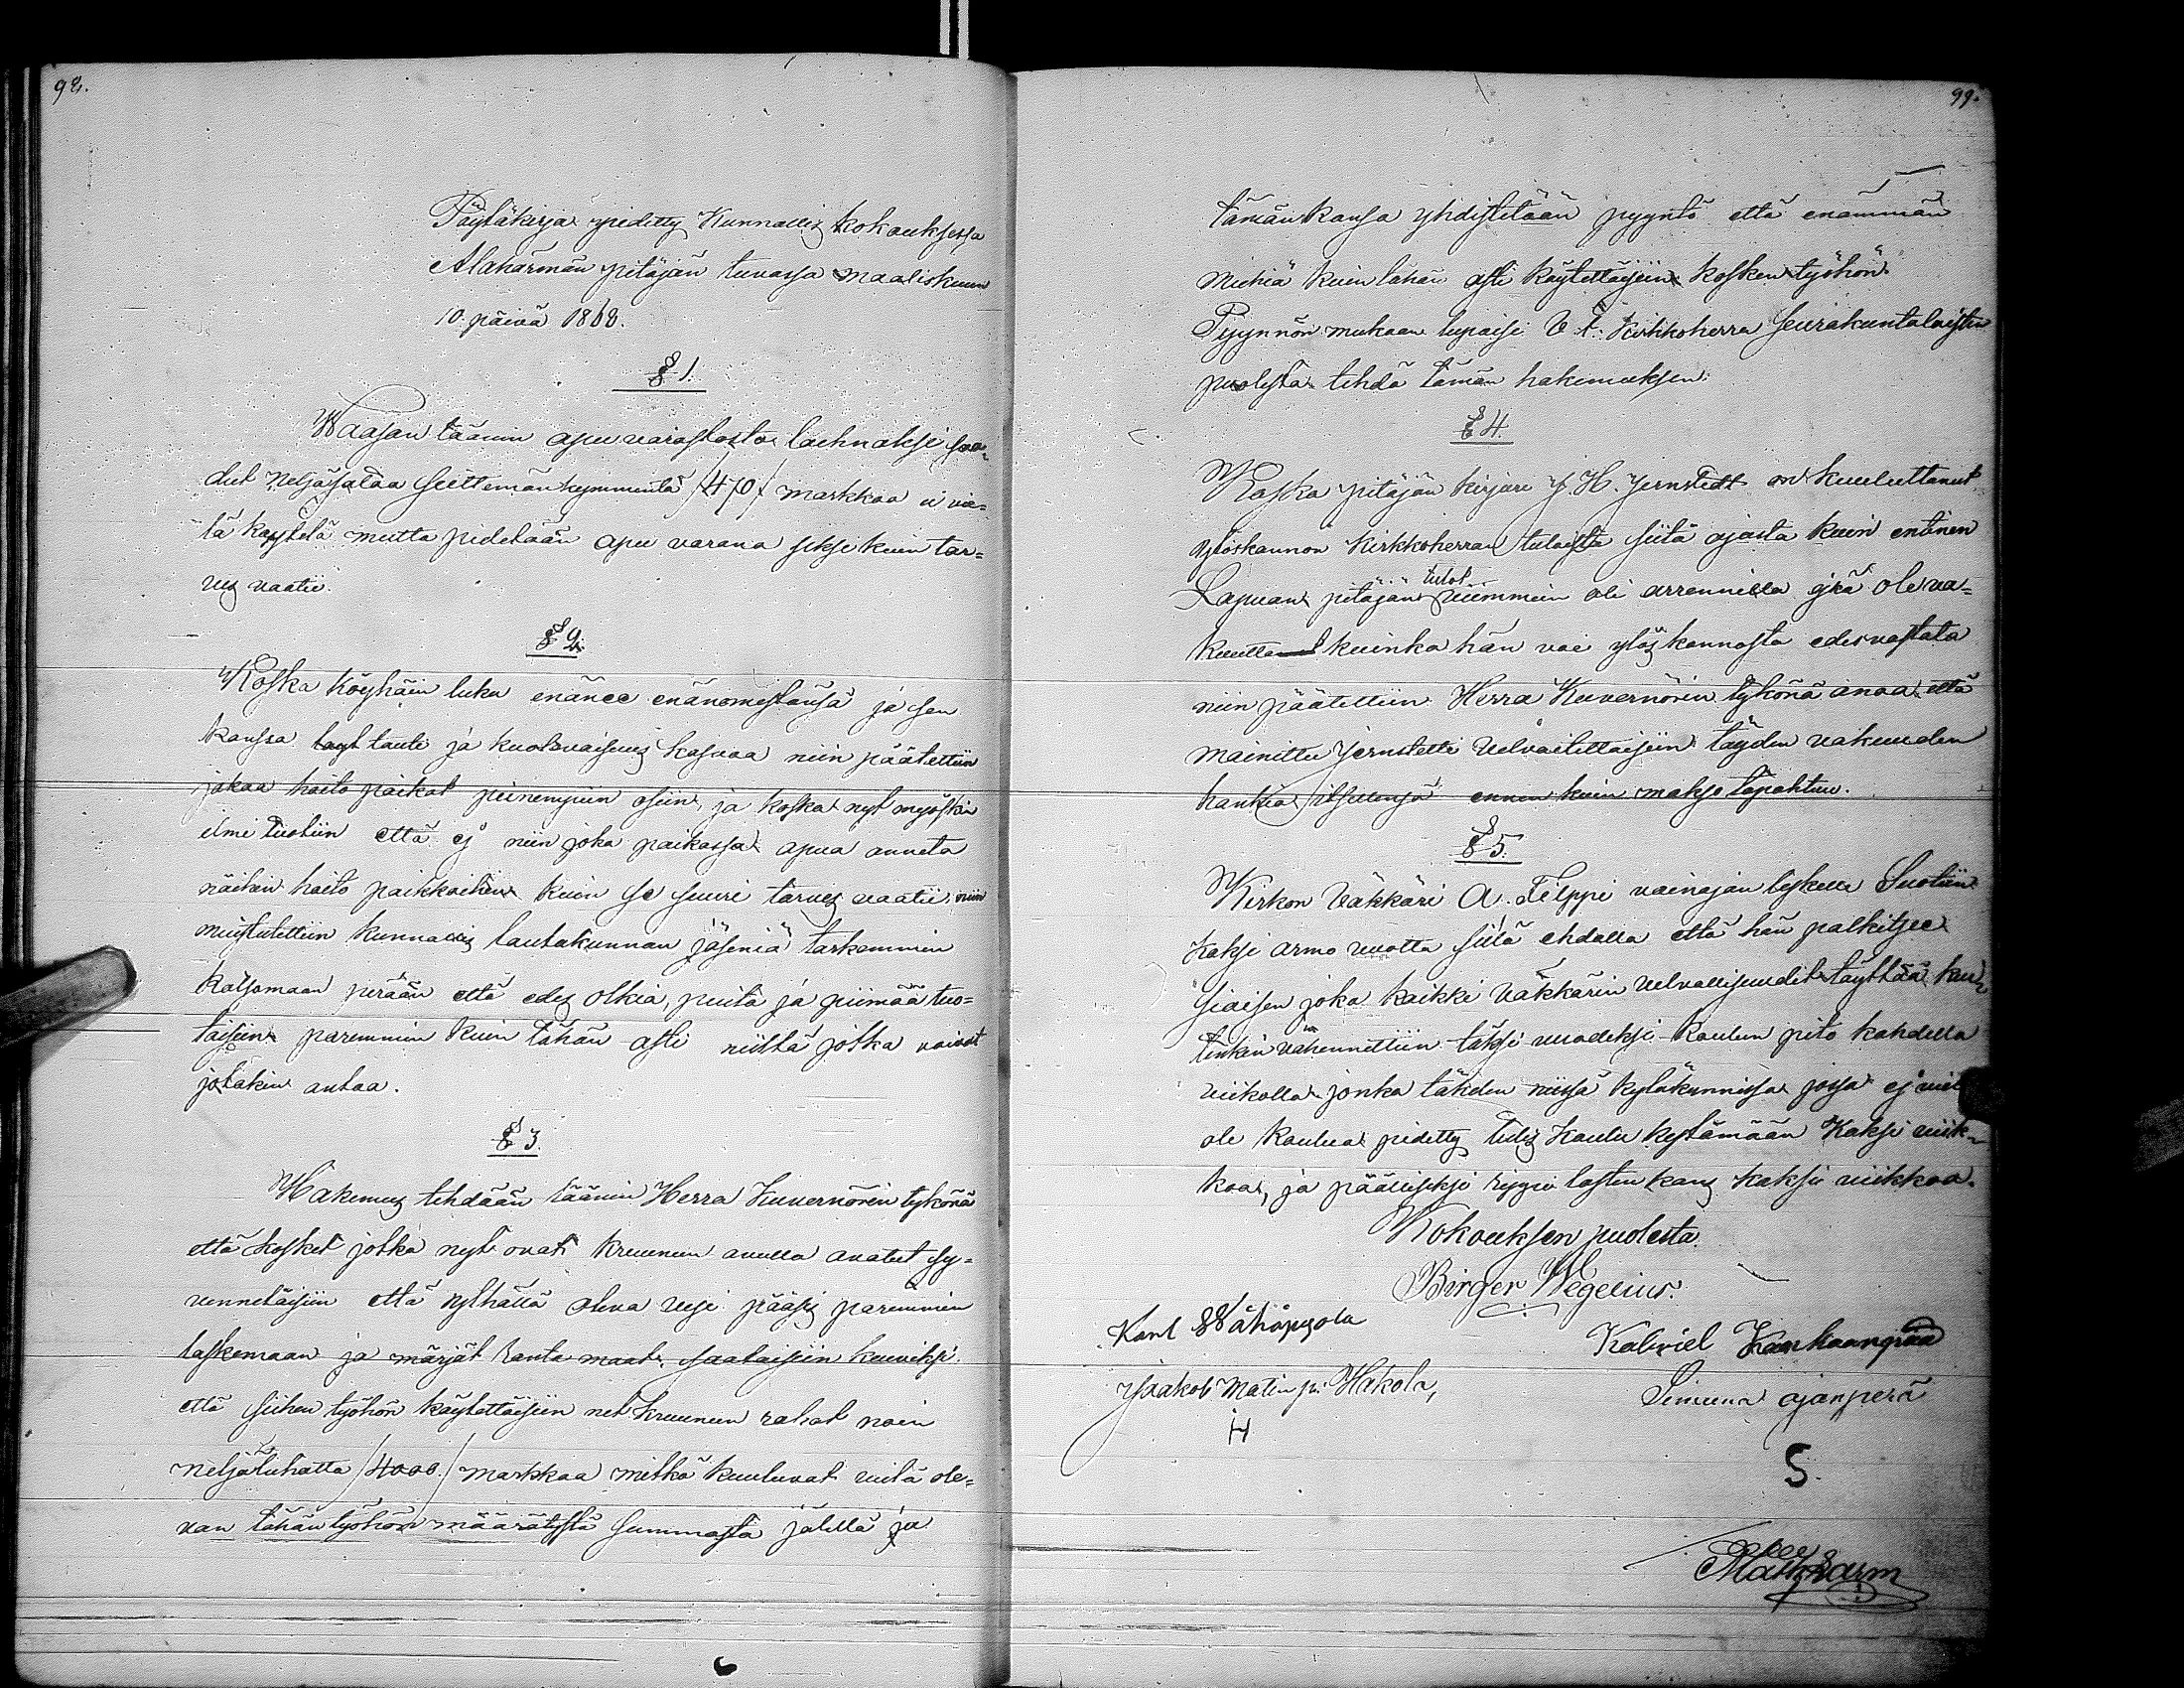 98.
Pöytäkirja pidetty Kunnallis kokouksessa
Alahärmän pitäjän tuvassa maaliskuun
10. päivä 1868.
§ 1.
Waasan läänin apu varastosta lainaksi saa-
dut neljäsataa seittemänkymmentä /470/ markkaa ei vie-
lä käytetä mutta pidetään apu varana siksi kuin tar-
ves vaatii.
§ 2.
Koska köyhäin luku enänee enänemistänsä ja sen
kanssa tauti ja kuolevaisuus kasvaa niin päätettiin
jakaa hoito paikat pienempiin osiin, ja koska nyt myöskin
ilmi tuotiin että ej niin joka paikassa apua anneta
näihin hoito paikkoihin kuin se suuri tarves vaatii, niin
muistutettiin kunnallis lautakunnan jäseniä tarkemmin
katsomaan perään että edes olkia, puita ja piimää tuo-
taisiin paremmin kuin tähän asti niiltä jotka voivat
jotakin antaa.
§ 3.
Hakemus tehdään läänin Herra Kuvernörin tykönä
että kosket jotka nyt ovat kruunun avulla avatut sy-
vennetäisiin että ylhällä oleva vesi pääsis paremmin
laskemaan ja märjät ranta maat saataisiin kuiviksi.
että siihen työhön käytettäisiin net kruunun rahat noin
neljätuhatta /4000./ markkaa mitkä kuuluvat vielä ole-
van tähän työhön määrätystä summasta jälellä ja
99.
tämän kansa yhdistetään pyyntö että enämmän
miehiä kuin tähän asti käytettäisiin kosken työhön.
Pyynnön mukaan lupaisi V. t. Kirkkoherra seurakuntalaisten
puolesta tehdä tämän hakemuksen.
§ 4.
Koska pitäjän kirjuri J. H. Jernstedt on kuuluttanut
ylöskannon kirkkoherran tuloista siitä ajasta kuin entinen
tulot
Lapuan pitäjän viimmein oli arrennilla eikä ole va-
kuutta kuinka hän voi ylös kannosta edesvastata
niin päätettiin Herra Kuvernörin tykönä anoa että
mainittu Jernstetti velvoitettaisiin täyden vakuuden
hankia itsellensä ennen kuin makso tapahtuu.
§ 5.
Kirkon Väkkäri A. Filppi vainajan leskelle suotiin
kaksi armo vuotta sillä ehdolla että hän palkitsee
siaisen joka kaikki väkkärin velvollisuudet täyttää kui-
tenkin vähennettiin täksi vuodeksi koulun pito kahdella
viikolla jonka tähden niissä kyläkunnissa jossa ej viel
ole koulua pidetty tulis koulu kestämään kaksi viik-
koa, ja päälliseksi rippi lasten kans kaksi viikkoa.
Kokouksen puolesta
Birger Wegelius.
Karl Wähäpuola
Kabriel Kankaanpää
Jaakob Matin p. Hakola,
H
Simuna ajanperä
S.